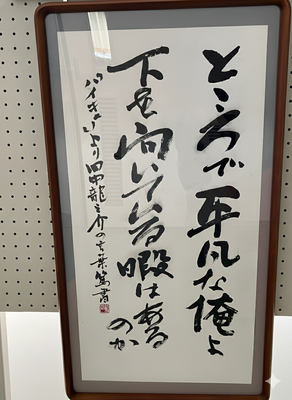 ところで平凡な俺よ
下を向いている暇はあるのか
ハイキューより田中龍之介の言葉 篤書